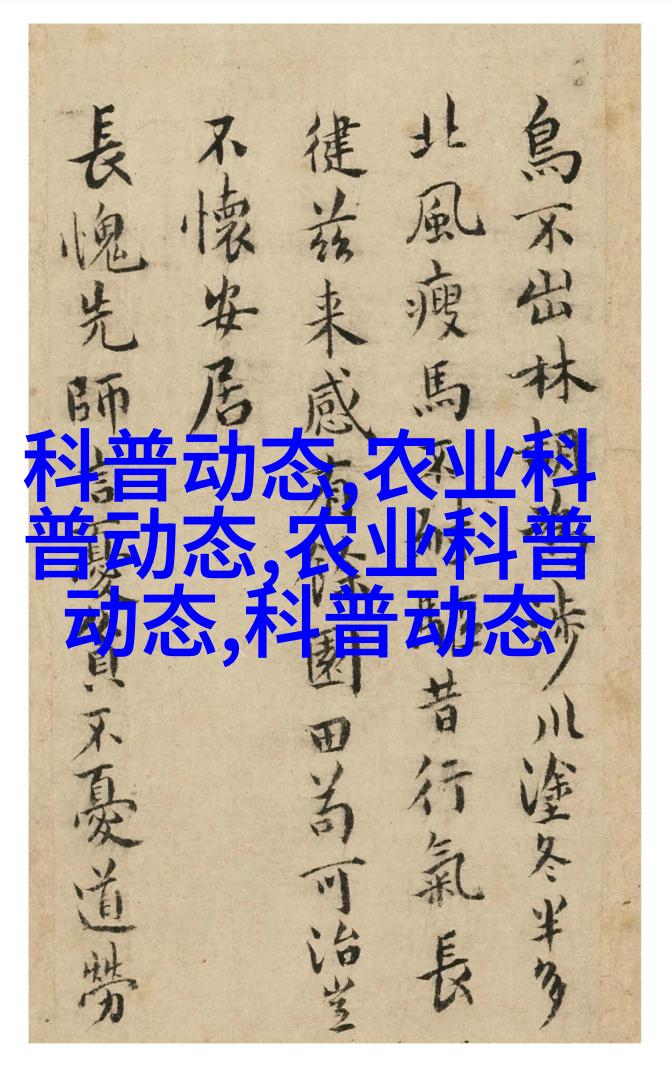 鳥不出林涉川塗冬半多
北風瘦馬不驅昔行氣長
徤兹来感有餘園田苟可治豈
不懷安居
長愧先師言憂貧不憂道勞
科普动态,农业科
普动态,农业科普
动态,科普动态